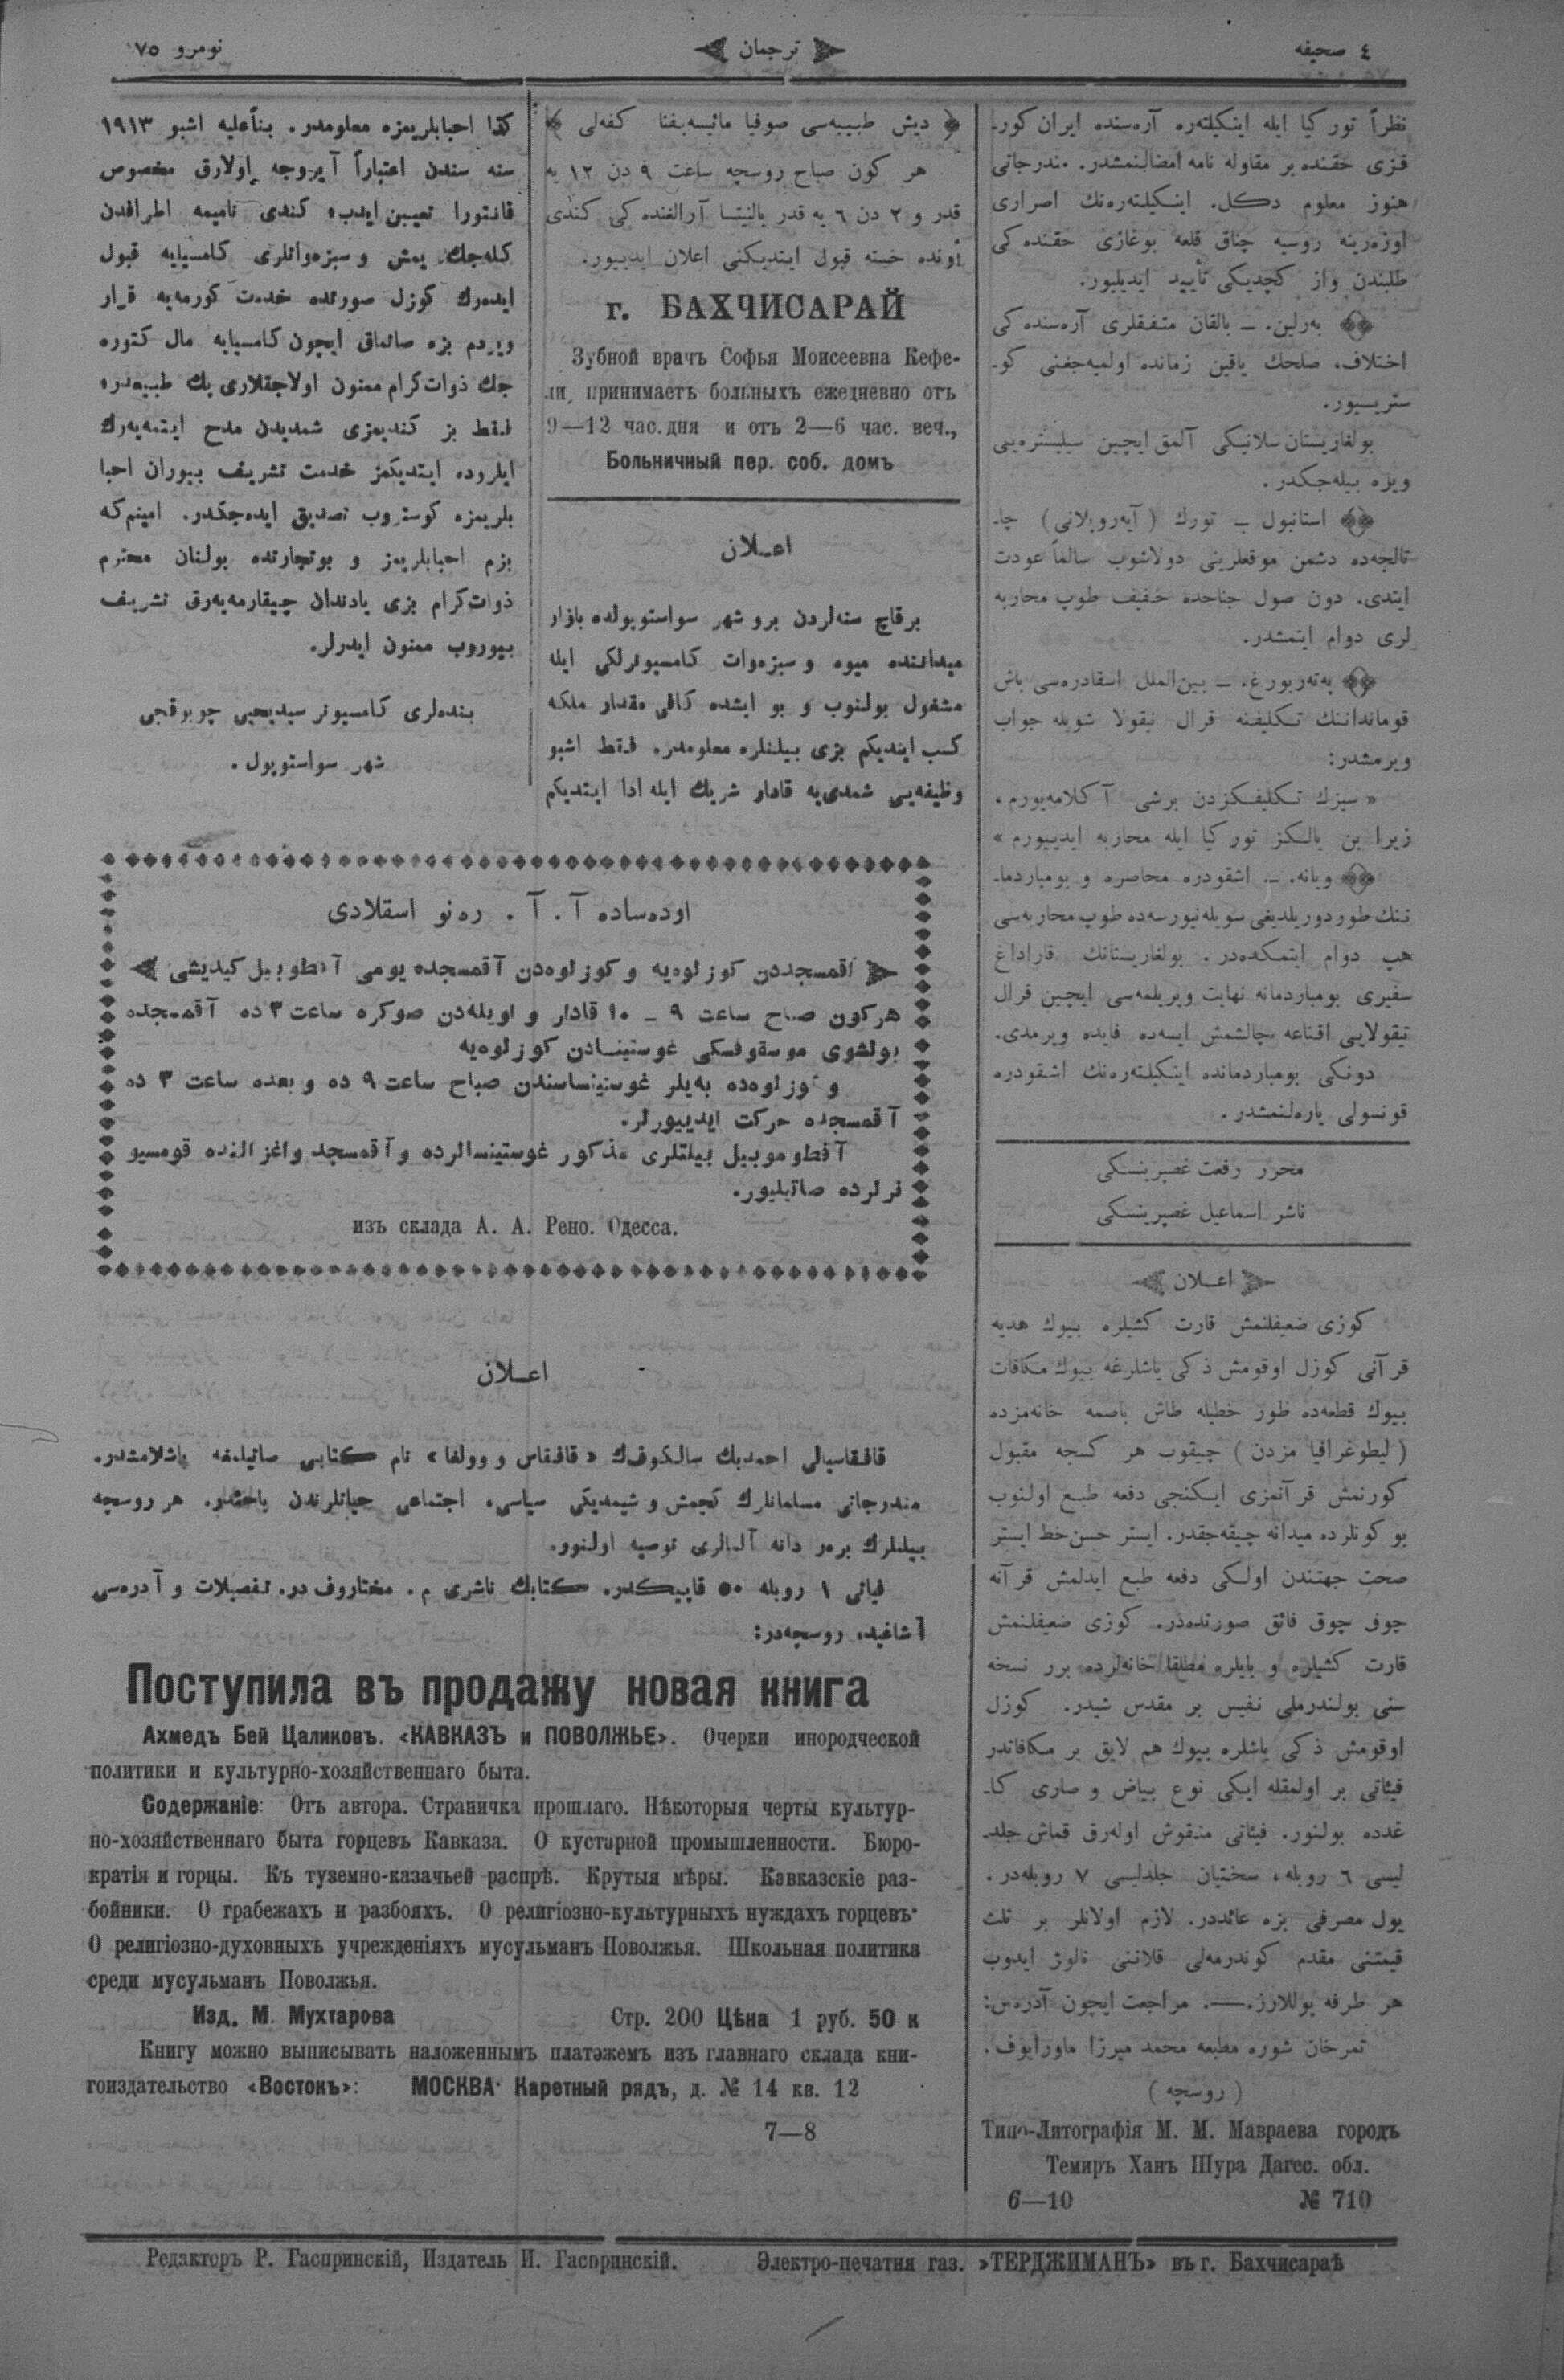 ٤ صحیفه
ترجمان
نومرو ٧٥
نظراً تورکیا ایله اینکیلتەرە آرەسنده ایران کور-
فزی حقنده بر مقاوله نامه امضالنمشدر. مندرجاتی
هنوز معلوم دکل. اینکیلتەرەنك اصراری
اوزەرینه روسیه چناق قلعه بوغازی حقنده کی
طلبندن واز کچدیکی تأیید ایدیلیور.
بەرلین. ـ بالقان متفقلری آرەسنده کی
اختلاف، صلحك یاقین زمانده اولمیەجغنی کو-
ستریـیور.
بولغارستان سلانیکی آلمق ایچین سیلیسترەیی
ویرە بیلەجکدر.
استانبول ـ تورك (آیەروپلانی) چا-
تالجەده دشمن موقعلرینی دولاشوب سالماً عودت
ایتدی. دون صول جناحده خفیف طوپ محاربه
لری دوام ایتمشدر.
پەتەربورغ. ـ بین‌الملل اسقادرەسی باش
قوماندانینك تکلیفنه قرال نیقولا شویله جواب
ویرمشدر:
« سیزك تکلیفکزدن برشی آکلامەیورم،
زیرا بن یالکز تورکیا ایله محاربه ایدییورم »
ویانه. ـ اشقودرە محاصرە و بومباردما-
ننك طوردوریلدیغی سویلەنیورسەده طوپ محاربەسی
هپ دوام ایتمکدەدر. بولغارستانك قاراداغ
سفیری بومباردمانه نهایت ویریلمەسی ایچین قرال
نیقولایی اقناعه چالشمش ایسەده فایده ویرمدی.
دونکی بومباردمانده اینکیلتەرەنك اشقودرە
قونسولی یارەلنمشدر.
محرر رفعت غصپرینسکی
ناشر اسماعیل غصپرینسکی
اعـلان
کوزی ضعیفلنمش قارت کشیلرە بیوك هدیه
قرآنی کوزل اوقومش ذکی یاشلرغه بیوك مکافات
بیوك قطعەده ظور خطیله طاش باصمه خانەمزده
(لیطوغرافیا مزدن) چیقوب هر کسجه مقبول
کورنمش قرآنمزی ایکنجی دفعه طبع اولنوب
بو کونلرده میدانه چیقەجقدر. ایستر حسن خط ایستر
صحت جهتندن اولکی دفعه طبع ایدلمش قرآنه
چوق چوق فائق صورتدەدر. کوزی ضعیفلنمش
قارت کشیلرە و بایلرە مطلقا خانەلرده برر نسخه
سنی بولندرملی نفیس بر مقدس شیدر. کوزل
اوقومش ذکی یاشلرە بیوك هم لایق بر مکافاتدر
قیئاتی بر اولمقله ایکی نوع بیاض و صاری کا-
غدده بولنور. فیئاتی منقوش اولەرق قماش جلد-
لیسی ٦ روبله، سختیان جلدلیسی ٧ روبلەدر.
یول مصرفی بزە عائددر. لازم اولانلر بر ثلث
قیمتنی مقدم کوندرمەلی قلاننی نالوژ ایدوب
هر طرفه یوللارز.—. مراجعت ایچون آدرەس:
تمرخان شورە مطبعه محمد میرزا ماورایوف.
(روسچه)
Типо-Литографія М. М. Мавраева городъ
Темиръ Ханъ Шура Дагес. обл.
6—10 № 710
دیش طبیبەسی صوفیا مائیسەیفنا کفەلی
هر کون صباح روسچه ساعت ٩ دن ١٢ یه
قدر و ٢ دن ٦ یه قدر بالنیتسا آرالغنده کی کندی
أونده خسته قبول ایتدیکنی اعلان ایدییور.
г. БАХЧИСАРАЙ
Зубной врачъ Софья Моисеевна Кефе-
ли, принимаетъ больныхъ ежедневно отъ
9—12 час. дня и отъ 2—6 час. веч.,
Больничный пер. соб. домъ
اعـلان
برقاچ سنەلردن برو شهر سواستوپولده بازار
میداننده میوە و سبزەوات کامسیونرلکی ایله
مشغول بولنوب و بو ایشده کافی مقدار ملکه
کسب ایتدیکم بزی بیلنلرە معلومدر. فقط اشبو
وظیفەیی شمدی‌یه قادار شریك ایله ادا ایتدیکم
کذا احبابلریمزە معلومدر. بنأعلیه اشبو ١٩١٣
سنه سندن اعتباراً آیروجه اولارق مخصوص
قانتورا تعیین ایدب کندی نامیمه اطرافدن
کلەجك یمش و سبزەواتلری کامسیایه قبول
ایدەرك کوزل صورتده خدمت کورمەیه قرار
ویردم بزە صاتماق ایچون کامسیایه مال کتورە
جك ذوات‌کرام ممنون اولاجقلاری پك طبیعەدر
فقط بز کندیمزی شمدیدن مدح ایتمەیەرك
ایلروده ایتدیکمز خدمت تشریف بیوران احبا
بلریمزە کوستروب تصدیق ایدەجکدر. امینم‌که
بزم احبابلریمز و بوتجارتده بولنان محترم
ذوات‌کرام بزی یادندان چیقارمەیەرق تشریف
بیوروب ممنون ایدرلر.
بندەلری کامسیونر سیدیحیی چوبوقجی
شهر سواستوپول.
اودەساده آ. آ. رەنو اسقلادی
آقمسجددن کوزلوەیه و کوزلوەدن آقمسجده یومی آفطوبیل کیدیشی
هرکون صباح ساعت ٩ ـ ١٠ قادار و اویلەدن صوکره ساعت ٣ ده آقمسجده
بولشوی موسقوفسکی غوستینسادن کوزلوەیه
و کوزلوەده بەیلر غوستینساسندن صباح ساعت ٩ ده و بعده ساعت ٣ ده
آقمسجده حرکت ایدییورلر.
آفطوموبیل بیلتلری مذکور غوستینسالرده و آقمسجد واغزالنده قومسیو
نرلرده صاتیلیور.
изъ склада А. А. Рено. Одесса.
اعـلان
قافقاسیالی احمدبك سالکوفك « قافقاس و وولغا » نام کتابی صاتیلمغه باشلامشدر.
مندرجاتی مسلمانلرك کچمش و شیمدیکی سیاسی، اجتماعی حیاتلرندن باحثدر. هر روسچه
بیلنلرك برەر دانه آلمالری توصیه اولنور.
فیأتی ١ روبله ٥٠ قاپیکدر. کتابك ناشری م. مختاروف در. تفصیلات و آدرەسی
آشاغیده روسچەدر:
Поступила въ продажу новая книга
Ахмедъ Бей Цаликовъ. «КАВКАЗЪ и ПОВОЛЖЬЕ». Очерки инородческой
политики и культурно-хозяйственнаго быта.
Содержаніе: Отъ автора. Страничка прошлаго. Нѣкоторыя черты культур-
но-хозяйственнаго быта горцевъ Кавказа. О кустарной промышленности. Бюро-
кратія и горцы. Къ туземно-казачьей распрѣ. Крутыя мѣры. Кавказскіе раз-
бойники. О грабежахъ и разбояхъ. О религіозно-культурныхъ нуждахъ горцевъ.
О религіозно-духовныхъ учрежденіяхъ мусульманъ Поволжья. Школьная политика
среди мусульманъ Поволжья.
Изд. М. Мухтарова Стр. 200 Цѣна 1 руб. 50 к
Книгу можно выписывать наложеннымъ платежемъ изъ главнаго склада кни-
гоиздательство «Востокъ»: МОСКВА· Каретный рядъ, д. № 14 кв. 12
7—8
Редакторъ Р. Гаспринскій, Издатель И. Гаспринскій. Электро-печатня газ. »ТЕРДЖИМАНЪ» въ г. Бахчисараѣ